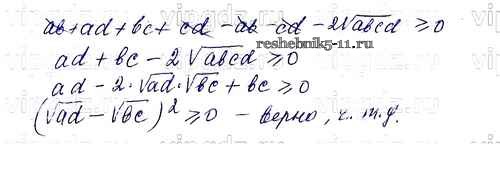 ab + ad + bc + cd - ab - cd - 2√abcd ≥ 0
reshebnik5-11.ru
ad + bc - 2√abcd ≥ 0
ad - 2·√ad·√bc + bc ≥ 0
(√ad - √bc)² ≥ 0 - верно, ч. т. д.